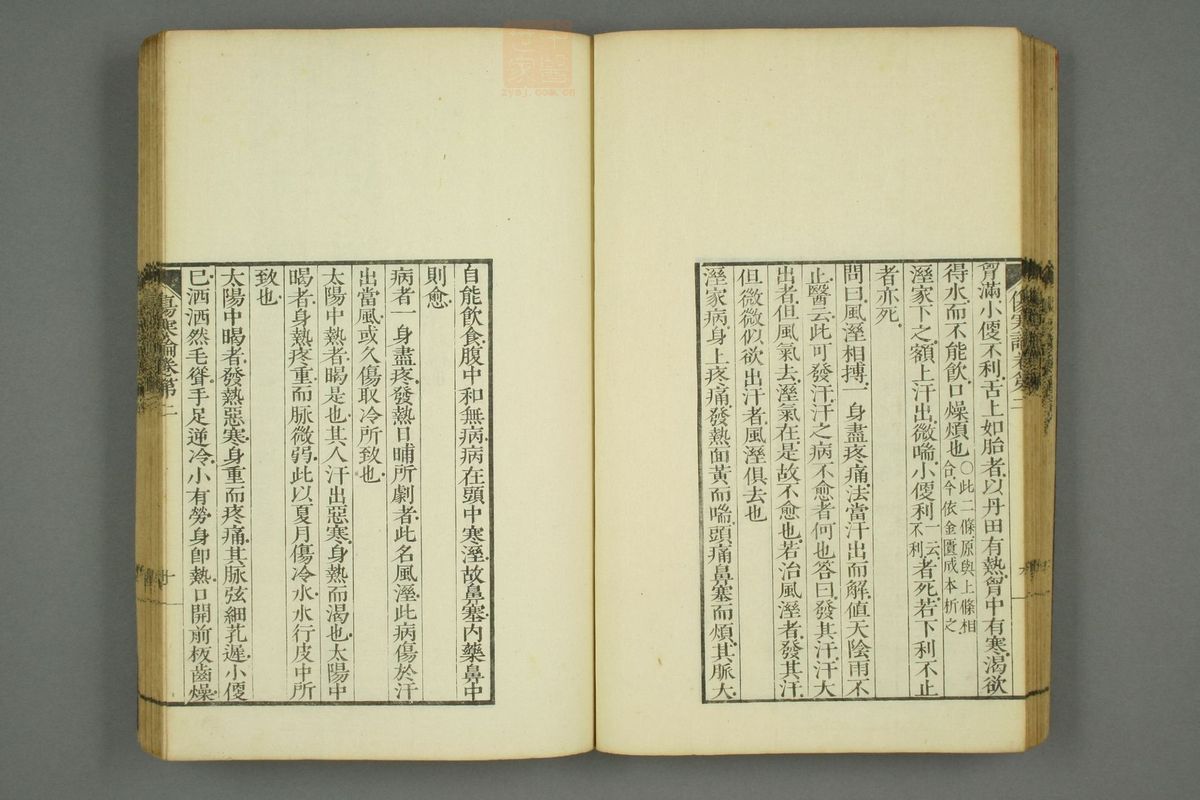 胷滿小便不利舌上如胎者以丹田有熱胷中有寒渴欲
得水而不能飲口燥煩也○此二條原與上條相合今依金匱成本析之
溼家下之額上汗出微喘小便利一云不利者死若下利不止
者亦死
問曰風溼相摶一身盡疼痛法當汗出而解值天陰雨不
止醫云此可發汗汗之病不愈者何也答曰發其汗汗大
出者但風氣去溼氣在是故不愈也若治風溼者發其汗
但微微似欲出汗者風溼俱去也
溼家病身上疼痛發熱面黃而喘頭痛鼻塞而煩其脈大
自能飲食腹中和無病病在頭中寒溼故鼻塞內藥鼻中
則愈
病者一身盡疼發熱日晡所劇者此名風溼此病傷於汗
出當風或久傷取冷所致也
太陽中熱者暍是也其人汗出惡寒身熱而渴也太陽中
暍者身熱疼重而脈微弱此以夏月傷冷水水行皮中所
致也
太陽中暍者發熱惡寒身重而疼痛其脈弦細芤遲小便
已洒洒然毛聳手足逆冷小有勞身卽熱口開前板齒燥
傷寒論卷第二
十
zysj.com.cn